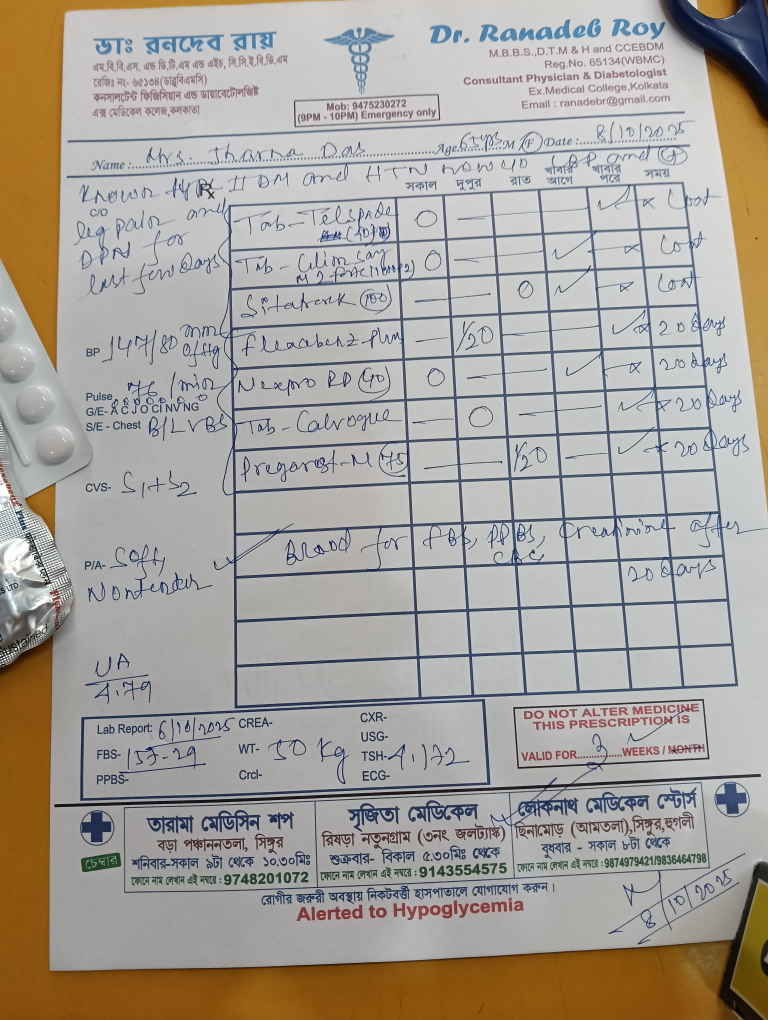 ডাঃ রনদেব রায়
এম.বি.বি.এস. এন্ড ডি.টি.এম এন্ড এইচ, সি.সি.ই.বি.ডি.এম
রেজিঃ নং- ৬৫১৩৪(ডাব্লুবিএমসি)
কনসালটেন্ট ফিজিসিয়ান এন্ড ডায়াবেটোলজিষ্ট
এক্স মেডিকেল কলেজ,কলকাতা
Mob: 9475230272
(9PM - 10PM) Emergency only
Dr. Ranadeb Roy
M.B.B.S.,D.T.M & H and CCEBDM
Reg.No. 65134(WBMC)
Consultant Physician & Diabetologist
Ex.Medical College,Kolkata
Email : ranadebr@gmail.com
Name: Mrs. Jharna Das Age M/F Date: 8/10/2025
Known II DM and HTN now
Rx
সকাল দুপুর রাত খাবার আগে খাবার পরে সময়
C/O
leg pain and
DPN for
last few days
Tab- (40) O — — — ✓ × Cont
Tab - O — — ✓ — × Cont
(100) — — O ✓ — × Cont
— 1/20 — — ✓ × 20 days
Nexpro RD (40) O — — ✓ — × 20 days
Tab- — O — — ✓ × 20 days
-M (75) — — 1/20 — ✓ × 20 days
BP 147/80 mm of Hg
Pulse 76 /min
G/E- A C J O C I N V N G
S/E - Chest B/L VBS
CVS- S1+S2
P/A- Soft,
Nontender
✓ Blood for FBS, PPBS, Creatinine after
CBC
20 days
UA
4.79
Lab Report: 6/10/2025 CREA- CXR-
FBS- 157.29 WT- 50 kg USG-
PPBS- Crcl- TSH- 4.172
ECG-
DO NOT ALTER MEDICINE
THIS PRESCRIPTION IS
VALID FOR 3 WEEKS / MONTH
চেম্বার
তারামা মেডিসিন শপ
বড়া পঞ্চাননতলা, সিঙ্গুর
শনিবার-সকাল ৯টা থেকে ১০.৩০মিঃ
ফোনে নাম লেখান এই নম্বরে : 9748201072
সৃজিতা মেডিকেল
রিষড়া নতুনগ্রাম (৩নং জলট্যাঙ্ক)
শুক্রবার- বিকাল ৫.৩০মিঃ থেকে
ফোনে নাম লেখান এই নম্বরে : 9143554575
লোকনাথ মেডিকেল স্টোর্স
ছিনামোড় (আমতলা),সিঙ্গুর,হুগলী
বুধবার - সকাল ৮টা থেকে
ফোনে নাম লেখান এই নম্বরে : 9874979421/9836464798
রোগীর জরুরী অবস্থায় নিকটবর্তী হাসপাতালে যোগাযোগ করুন।
Alerted to Hypoglycemia
8/10/2025